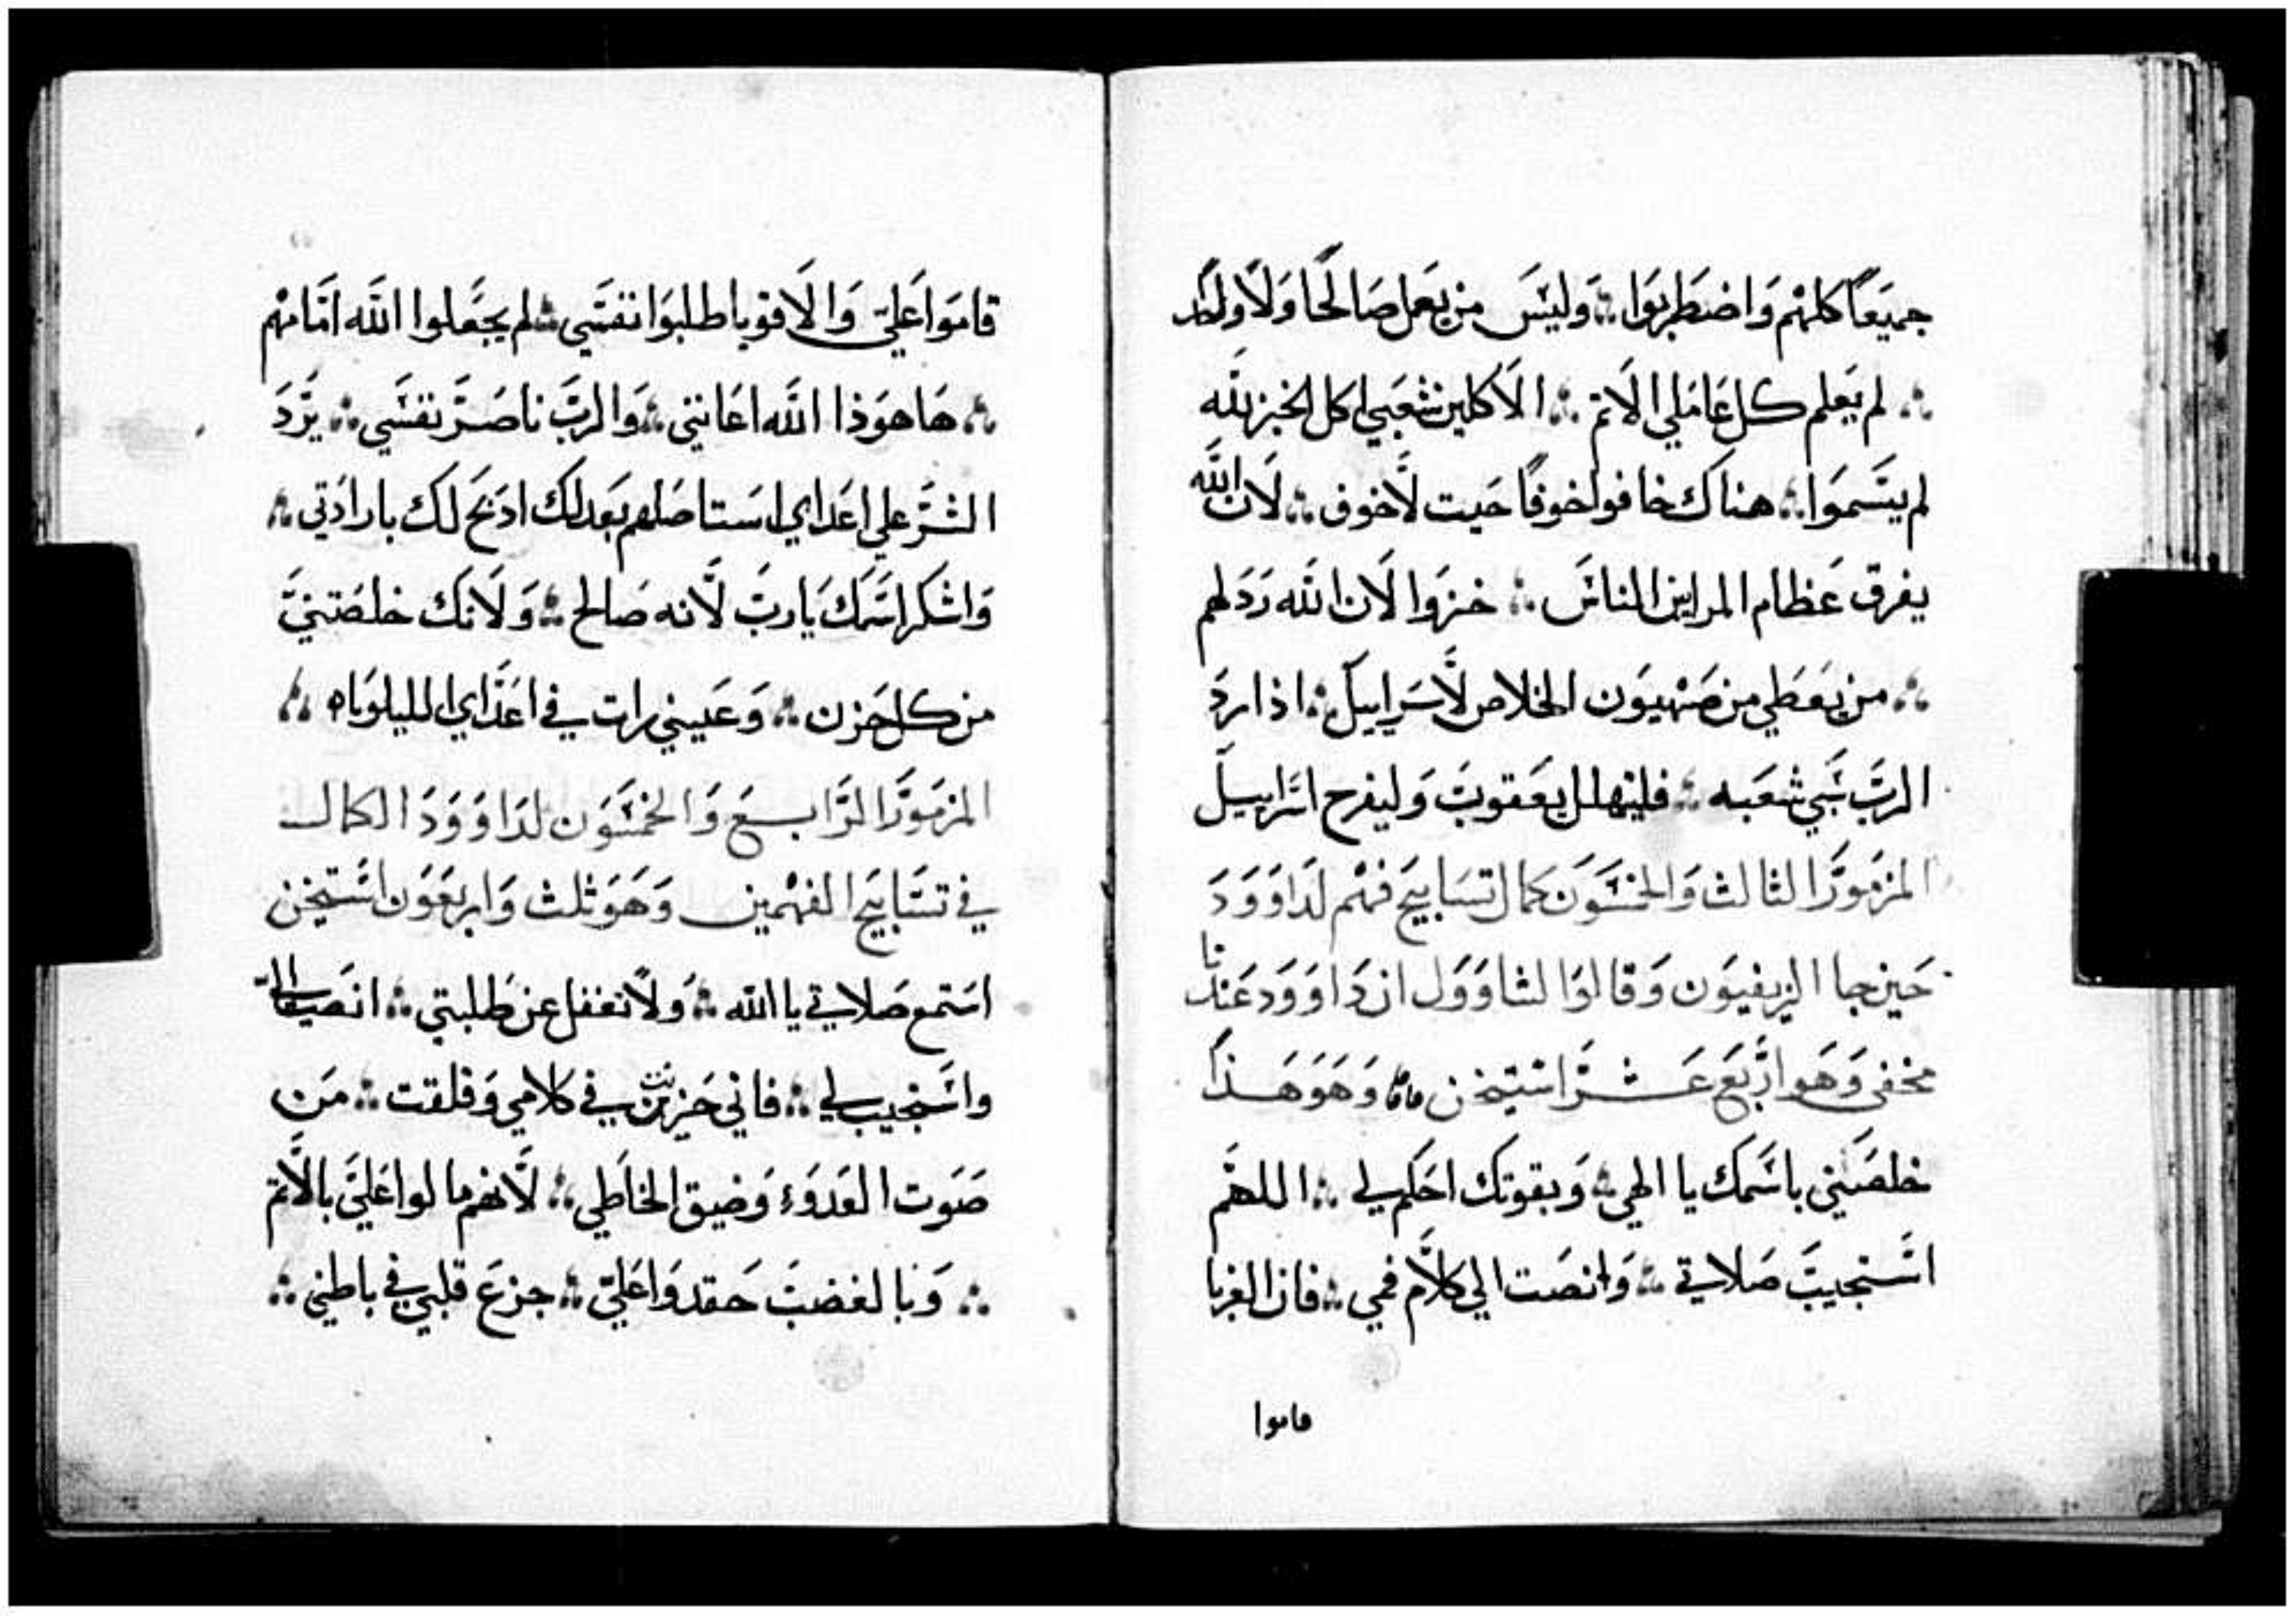 جميَعاً كلهْم وَاضطربَوا ∴ وَليسَ من يعَمل صَالحًا وَلاَ واحد
∴ لم يَعلم كل عَاملي الاَثم ∴ الاَكلين شعَبي اكل الخبز لله
لم يتسَموَا ∴ هناك خافوا خوفًا حَيت لاَّخوف ∴ لاَن الله
يفرق عَظام المرايين الناسَ ∴ خزَوا لاَن الله رَدَلهم
∴ من يعَطي من صَهْيوَن الخلاص لاَّسَراييل ∴ اذا ردَ
الربَّ سَبي شعَبه ∴ فليتهلل يعَقوبَ وَليفرح اسَراييل
المزمَورَ الثالث وَالخمسَوَن كمال تسَابيحَ فهْم لدَاوَوَدَ
حَين جا الزيفيوَن وَقالوَا لشاوَوَل ان دَاوَوَد عَندنا
مخفى وَهَو ارَّبعَ عَشرَ استيخن وَهوَ هَذا
خلصَني باسَمك يا الهي ∴ وَبقوتك احَكم لي ∴ اللهمَّ
اسَتجيبَ صَلاتي ∴ وَانصَت الي كلاَّم فمي ∴ فان الغربا
قاموا
قاموَا عَليّ وَالاَقويا طلبوَا نفسَي ∴ لم يجعَلوا اللَه امَامهْم
∴ هَا هوَذا اللَه اعَانني ∴ وَالربَّ ناصَرَ نفسَي ∴ يرَدَ
الشرَ علي اعَداي استاصَلهم بعَدلك ادَبح لك بارادَتي ∴
وَاشكر اسَمك يَا ربَّ لاَّنه صَالح ∴ وَلاَنك خلصَتنيَ
من كل حَزن ∴ وَعَيني رات في اعَدَاي الليلوَياه ∴
المزمَورَ الرَابعَ وَالخمسَوَن لدَاوَوَدَ الكمال
في تسَابيَح الفهْمين وَهَوَ ثلث وَاربعَوَن استَيخن
اسَتمع صَلاتي يا الله ∴ وَلاَ تغفل عن طلبتي ∴ انصَت الي
واسَتجيب لي ∴ فاني حَزينت في كلامي وَقلقت ∴ مَن
صَوَت العَدوَء وَضيق الخاطي ∴ لاَّنهم مالوا عَليَّ بالاَّثم
∴ وَبالغضبَ حَقدوَا عَليّ ∴ جزعَ قلبي في باطني ∴